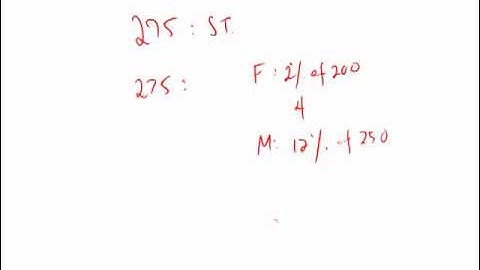 275 : ST.
275 :
F : 2% of 200
4
M : 12% of 250